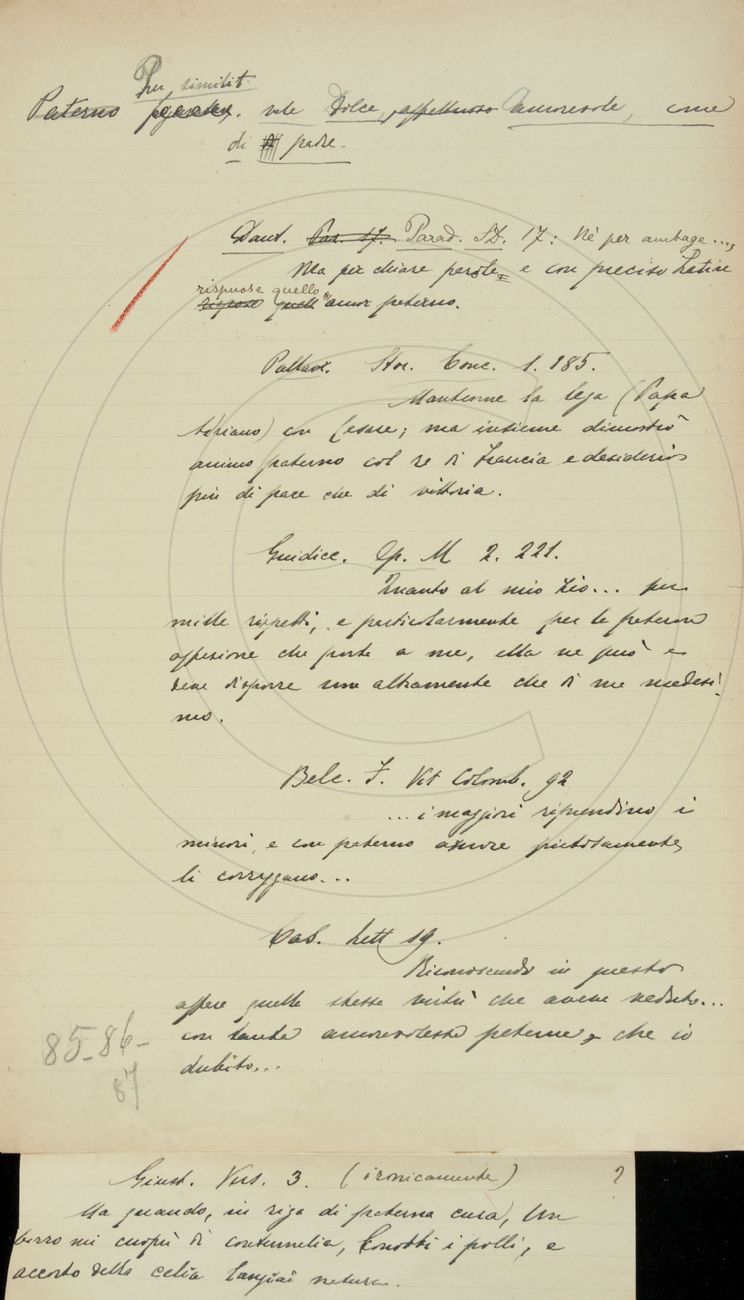 Per similit.
Paterno vale Dolce, affettuoso amorevole, come
di padre.
Dant. Par. 17. Parad. SD. 17: Nè per ambage...,
Ma per chiare parole e con preciso Latin
rispuose quello
rispose quell amor paterno.
Pallav. Stor. Conc. 1. 185.
Mantenne la lega (Papa
Adriano) con Cesare; ma insieme dimostrò
animo paterno col re di Francia e desiderio
più di pace che di vittoria.
Guidicc. Op. M 2. 221.
Quanto al mio zio... per
mille rispetti, e particolarmente per la paterna
affezione che porta a me, ella ne può e
deve disporre non altramente che di me medesi
mo.
Belc. F. Vit Colomb. 92
...i maggiori riprendino i
minori, e con paterno amore pietosamente
li correggano...
Cas. Lett 19.
Riconoscendo in questo
affare quella stessa virtù che aveva veduta...
con tanta amorevolezza paterna, che io
dubito...
85-86-
87
Giust. Vers. 3. (ironicamente) ?
Ma quando, in riga di paterna cura, Un
birro mi coprì di contumelia, Conobbi i polli, e
accorto della celia Lasciai